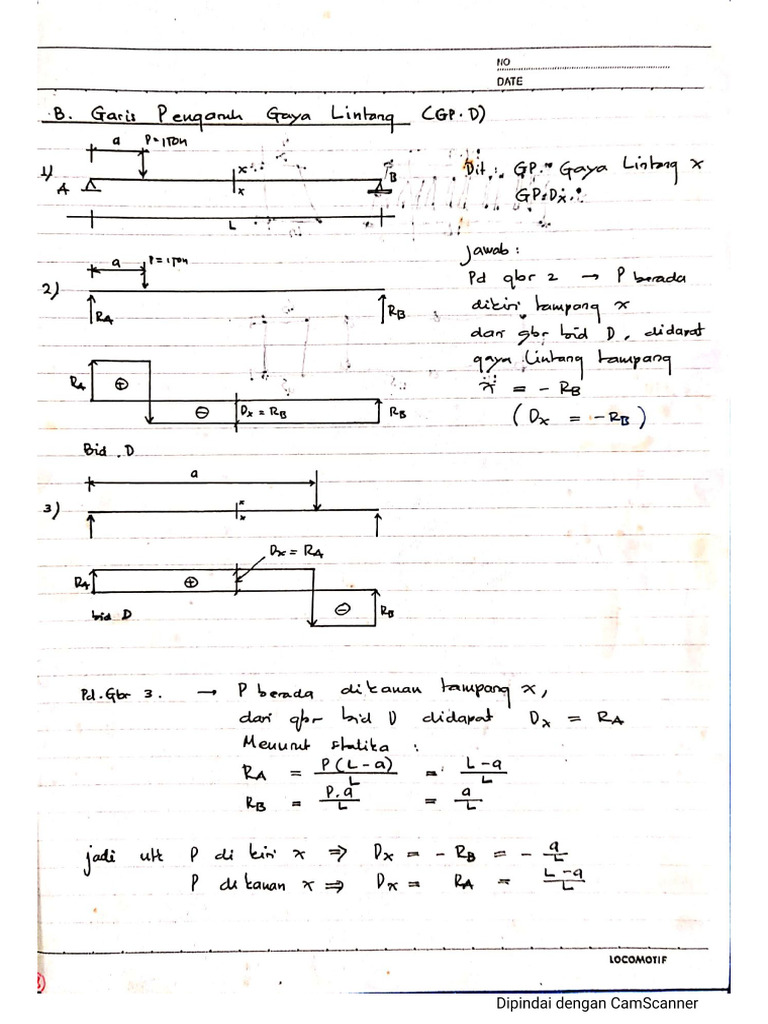 NO
DATE
B. Garis Pengaruh Gaya Lintang (GP.D)
a P=1Ton
1) A x x B
L
Dit : GP. Gaya Lintang x
GP.Dx.
Jawab :
a P=1Ton
2)
RA RB
Pd gbr 2 → P berada
dikiri tampang x
dari gbr bid D, didapat
gaya lintang tampang
x = - RB
(Dx = -RB)
RA ⊕ ⊖ Dx = RB RB
Bid . D
a
3) x x
Dx = RA
RA ⊕ ⊖ RB
bid D
Pd. Gbr 3. → P berada dikanan tampang x,
dari gbr bid D didapat Dx = RA
Menurut statika :
RA = P(L-a)/L = L-a/L
RB = P.a/L = a/L
jadi utk P di kiri x ⇒ Dx = - RB = - a/L
P di kanan x ⇒ Dx = RA = L-a/L
LOCOMOTIF
Dipindai dengan CamScanner